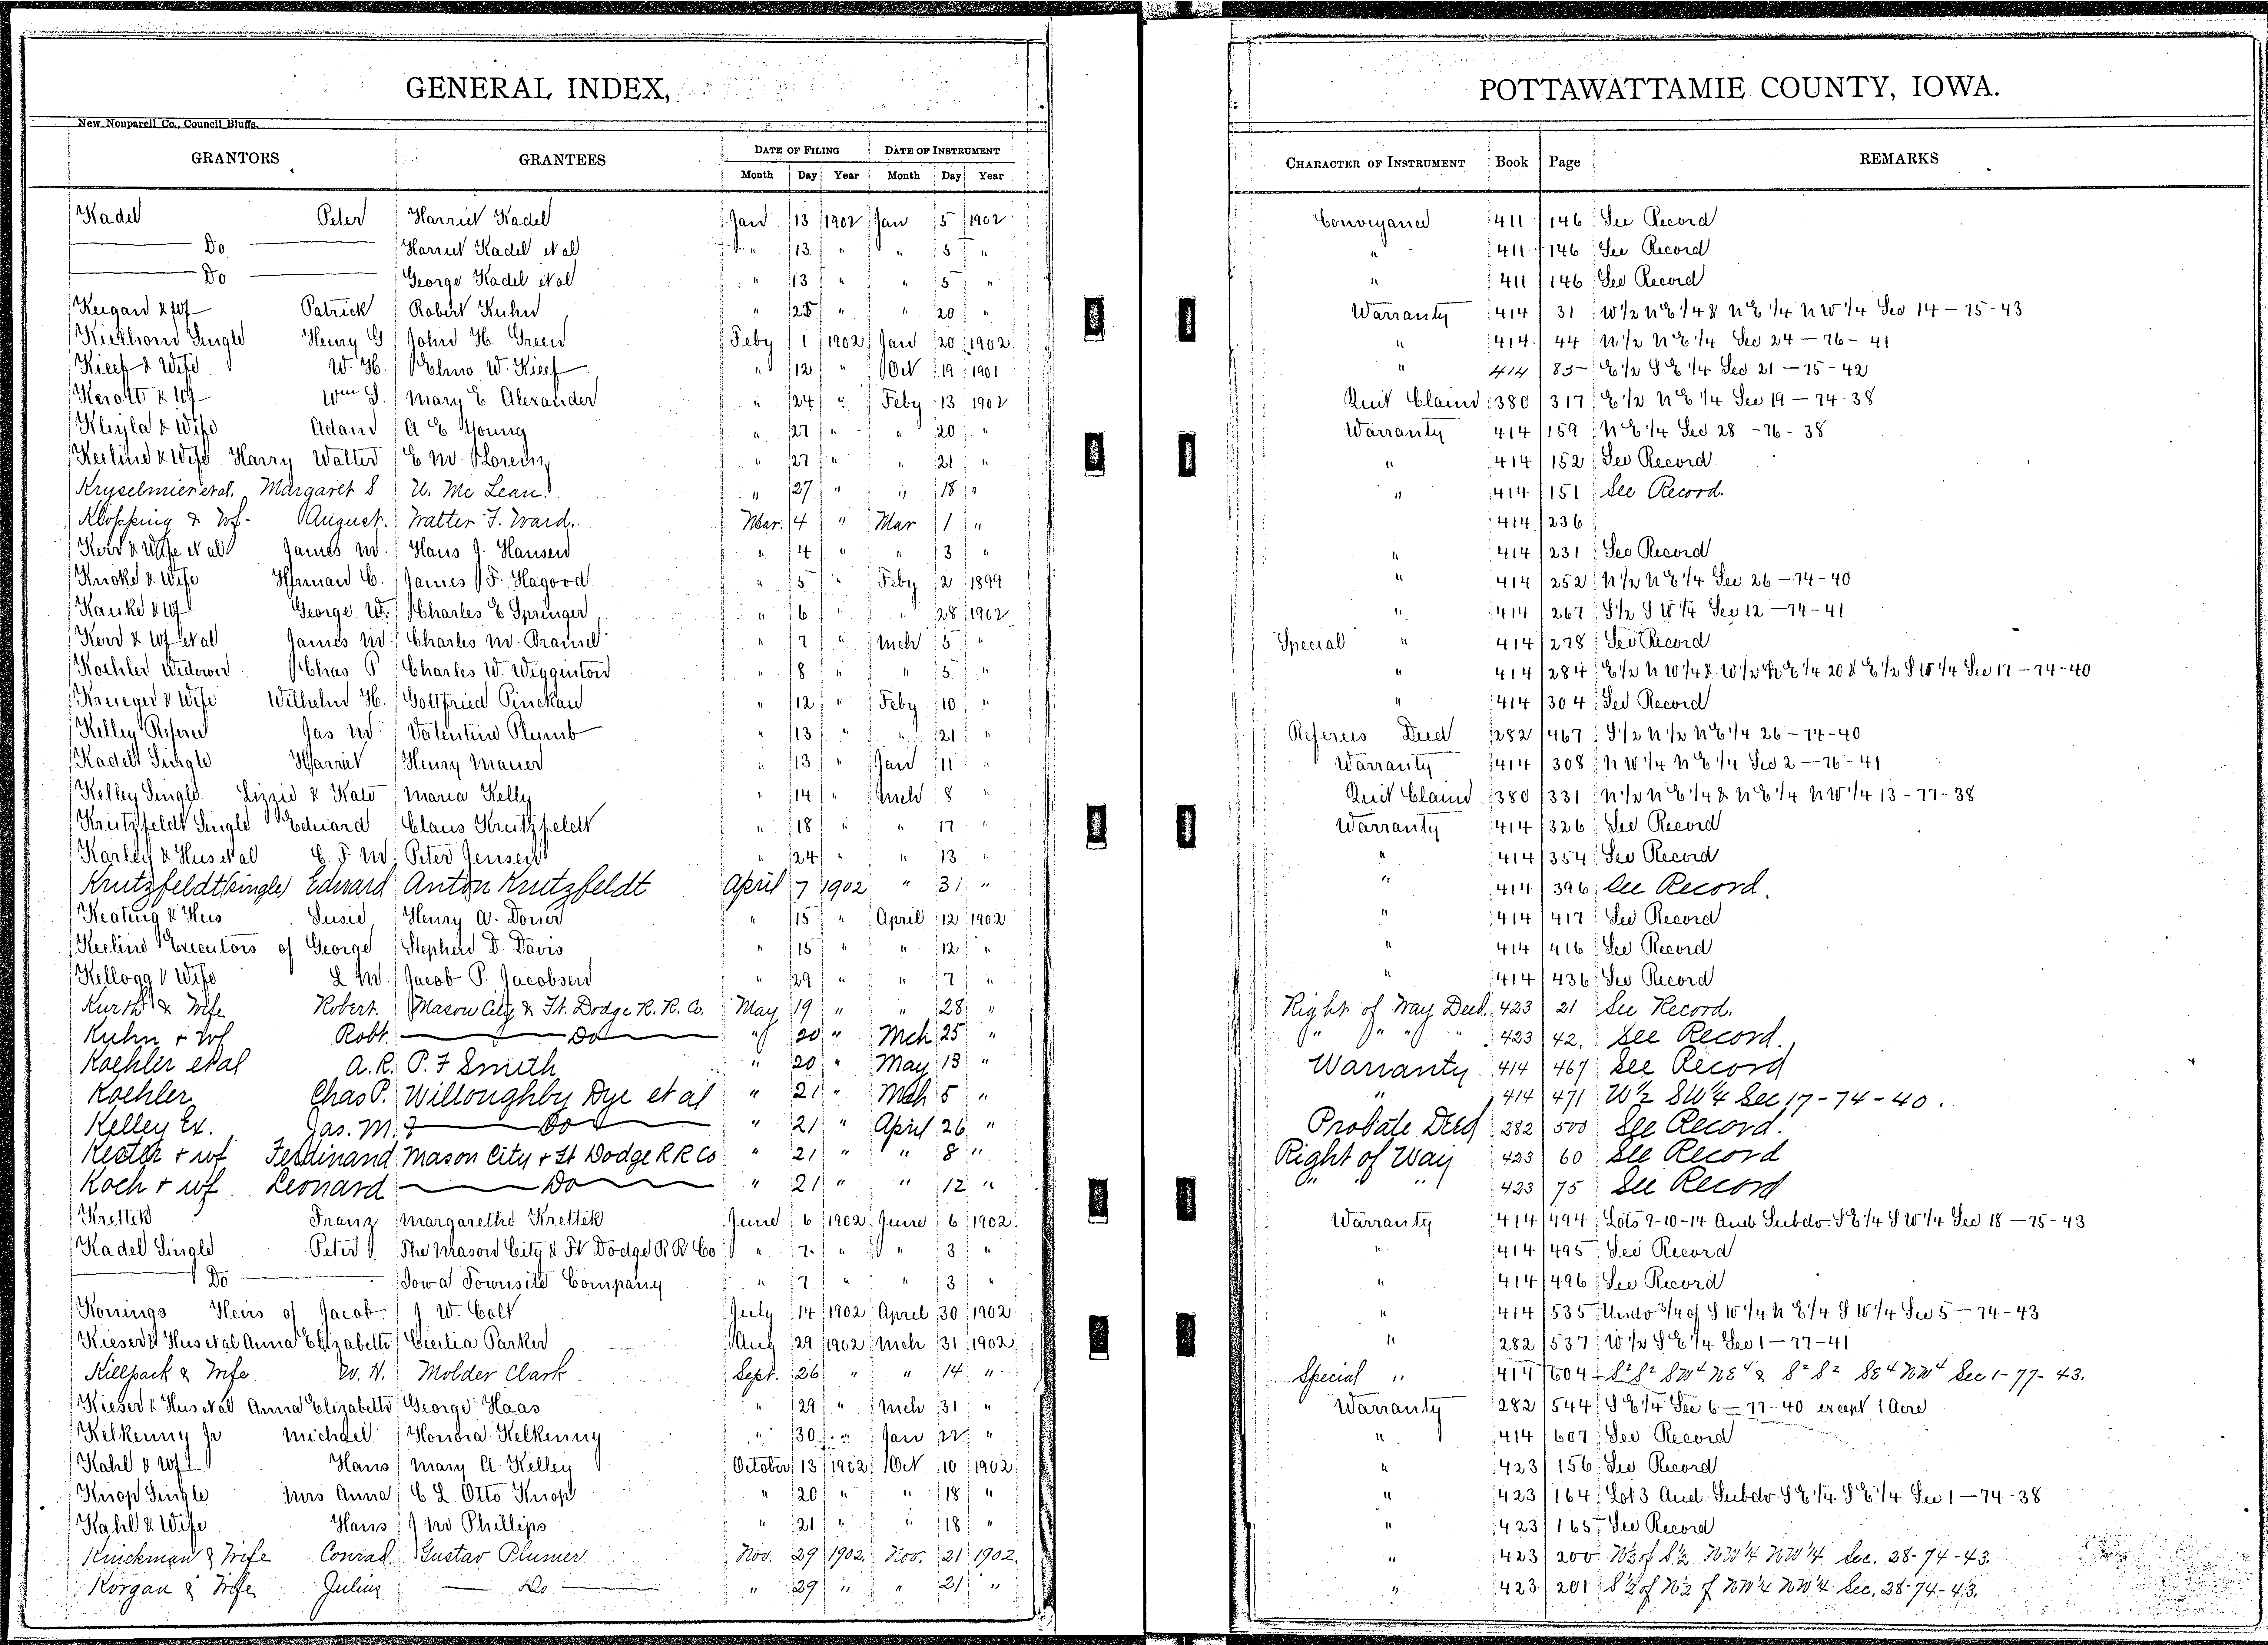 GENERAL INDEX,
New Nonpareil Co., Council Bluffs.
GRANTORS GRANTEES DATE OF FILING DATE OF INSTRUMENT
Month Day Year Month Day Year
Kadel Peter Harriet Kadel Jan 13 1902 Jan 5 1902
Do Harriet Kadel et al " 13 " " 5 "
Do George Kadel et al " 13 " " 5 "
Keegan & Wf Patrick Robert Kuhn " 25 " " 20 "
Kielhorn Single Henry G John H. Green Feby 1 1902 Jan 20 1902
Kieef & Wife W. H. Elmo W. Kieef " 12 " Oct 19 1901
& Wf Wm S. Mary E. Alexander " 24 " Feby 13 1902
& Wife Adam A E Young " 27 " " 20 "
Keeline & Wife Harry Walter E M. Lorenz " 27 " " 21 "
Kryselmier et al. Margaret S U. Mc Lean. " 27 " " 18 "
Klopping & Wf. August. Walter F. Ward. Mar. 4 " Mar 1 "
Kerr & Wife et al James M. Hans J. Hansen " 4 " " 3 "
& Wife Herman C. James F. Hagood " 5 " Feby 2 1899
& Wf George W. Charles E Springer " 6 " " 28 1902
Kerr & Wf et al James M Charles M. Bramel " 7 " Mch 5 "
Koehler Widower Chas P Charles W. Wigginton " 8 " " 5 "
Krueger & Wife Wilhelm H. Gottfried Pinckau " 12 " Feby 10 "
Kelley Referee Jas M Valentine Plumb " 13 " " 21 "
Kadell Single Harriet Henry Mauer " 13 " Jan 11 "
Kelley Single Lizzie & Kate Maria Kelly " 14 " Mch 8 "
Krutzfeldt Single Edward Claus Krutzfeldt " 18 " " 17 "
Karley & Hus et al C. F M Peter Jensen " 24 " " 13 "
Krutzfeldt (single) Edward Anton Krutzfeldt April 7 1902 " 31 "
Keating & Hus Susie Henry A. Doner " 15 " April 12 1902
Keeline Executors of George Stephen D. Davis " 15 " " 12 "
Kellogg & Wife L M. Jacob P. Jacobsen " 29 " " 7 "
Kurth & Wife Robert. Mason City & Ft. Dodge R. R. Co. May 19 " " 28 "
Kuhn + Wf Robt. Do " 20 " Mch 25 "
Koehler et al A. R. P. F Smith " 20 " May 13 "
Koehler Chas P. Willoughby Dye et al " 21 " Mch 5 "
Kelley Ex. Jas. M. Do " 21 " April 26 "
Kester + wf Ferdinand Mason City + Ft Dodge R R Co " 21 " " 8 "
Koch + wf Leonard Do " 21 " " 12 "
Krettek Franz Margarethe Krettek June 6 1902 June 6 1902
Kadel Single Peter The Mason City & Ft Dodge R R Co " 7 " " 3 "
Do Iowa Townsite Company " 7 " " 3 "
Konings Heirs of Jacob J W. Colt July 14 1902 April 30 1902
Kieser & Hus et al Anna Elizabeth Cecilia Parker Aug 29 1902 Mch 31 1902
Killpack & Wife. W. H. Molder Clark Sept. 26 " " 14 "
Kieser & Hus et al Anna Elizabeth George Haas " 29 " Mch 31 "
Kilkenny Jr Michael Honora Kelkenny " 30 " Jan 22 "
Kahl & Wf Hans Mary A. Kelley October 13 1902 Oct 10 1902
Knop Single Mrs Anna C L Otto Knop " 20 " " 18 "
Kahl & Wife Hans J M Phillips " 21 " " 18 "
Knickman & Wife Conrad Gustav Plumer Nov. 29 1902. Nov. 21 1902.
Korgan & Wife Julius Do " 29 " " 21 "
POTTAWATTAMIE COUNTY, IOWA.
CHARACTER OF INSTRUMENT Book Page REMARKS
Conveyance 411 146 See Record
" 411 146 See Record
" 411 146 See Record
Warranty 414 31 W 1/2 N E 1/4 & N E 1/4 N W 1/4 Sec 14 - 75 - 43
" 414 44 N 1/2 N E 1/4 Sec 24 - 76 - 41
" 414 83 E 1/2 S E 1/4 Sec 21 - 75 - 42
Quit Claim 380 317 E 1/2 N E 1/4 Sec 19 - 74 - 38
Warranty 414 159 N E 1/4 Sec 28 - 76 - 38
" 414 152 See Record
" 414 151 See Record.
414 236
" 414 231 See Record
" 414 252 N 1/2 N E 1/4 Sec 26 - 74 - 40
" 414 267 S 1/2 S W 1/4 Sec 12 - 74 - 41
Special " 414 278 See Record
" 414 284 E 1/2 N W 1/4 & W 1/2 N E 1/4 20 & E 1/2 S W 1/4 Sec 17 - 74 - 40
" 414 304 See Record
Referees Deed 282 467 S 1/2 N 1/2 N E 1/4 26 - 74 - 40
Warranty 414 308 N W 1/4 N E 1/4 Sec 2 - 76 - 41
Quit Claim 380 331 N 1/2 N E 1/4 & N E 1/4 N W 1/4 13 - 77 - 38
Warranty 414 326 See Record
" 414 354 See Record
" 414 396 See Record.
" 414 417 See Record
" 414 416 See Record
" 414 436 See Record
Right of Way Deed. 423 21 See Record.
" " " " 423 42. See Record.
Warranty 414 467 See Record
" 414 471 W 1/2 SW 1/4 Sec 17 - 74 - 40.
Probate Deed 282 500 See Record.
Right of Way 423 60 See Record
" " 423 75 See Record
Warranty 414 494 Lots 9-10-14 Aud Subdv. S E 1/4 S W 1/4 Sec 18 - 75 - 43
" 414 495 See Record
" 414 496 See Record
" 414 535 Undv 3/4 of S W 1/4 N E 1/4 S W 1/4 Sec 5 - 74 - 43
" 282 537 W 1/2 S E 1/4 Sec 1 - 77 - 41
Special " 414 604 S2 S2 SW4 NE4 & S2 S2 SE4 NW4 Sec 1 - 77 - 43.
Warranty 282 544 S E 1/4 Sec 6 - 77 - 40 except 1 Acre
" 414 607 See Record
" 423 156 See Record
" 423 164 Lot 3 Aud. Subdv S E 1/4 S E 1/4 Sec 1 - 74 - 38
" 423 165 See Record
" 423 200 N 1/2 of S 1/2 NW 1/4 NW 1/4 Sec. 28 - 74 - 43.
" 423 201 S 1/2 of N 1/2 of NW 1/4 NW 1/4 Sec. 28 - 74 - 43.